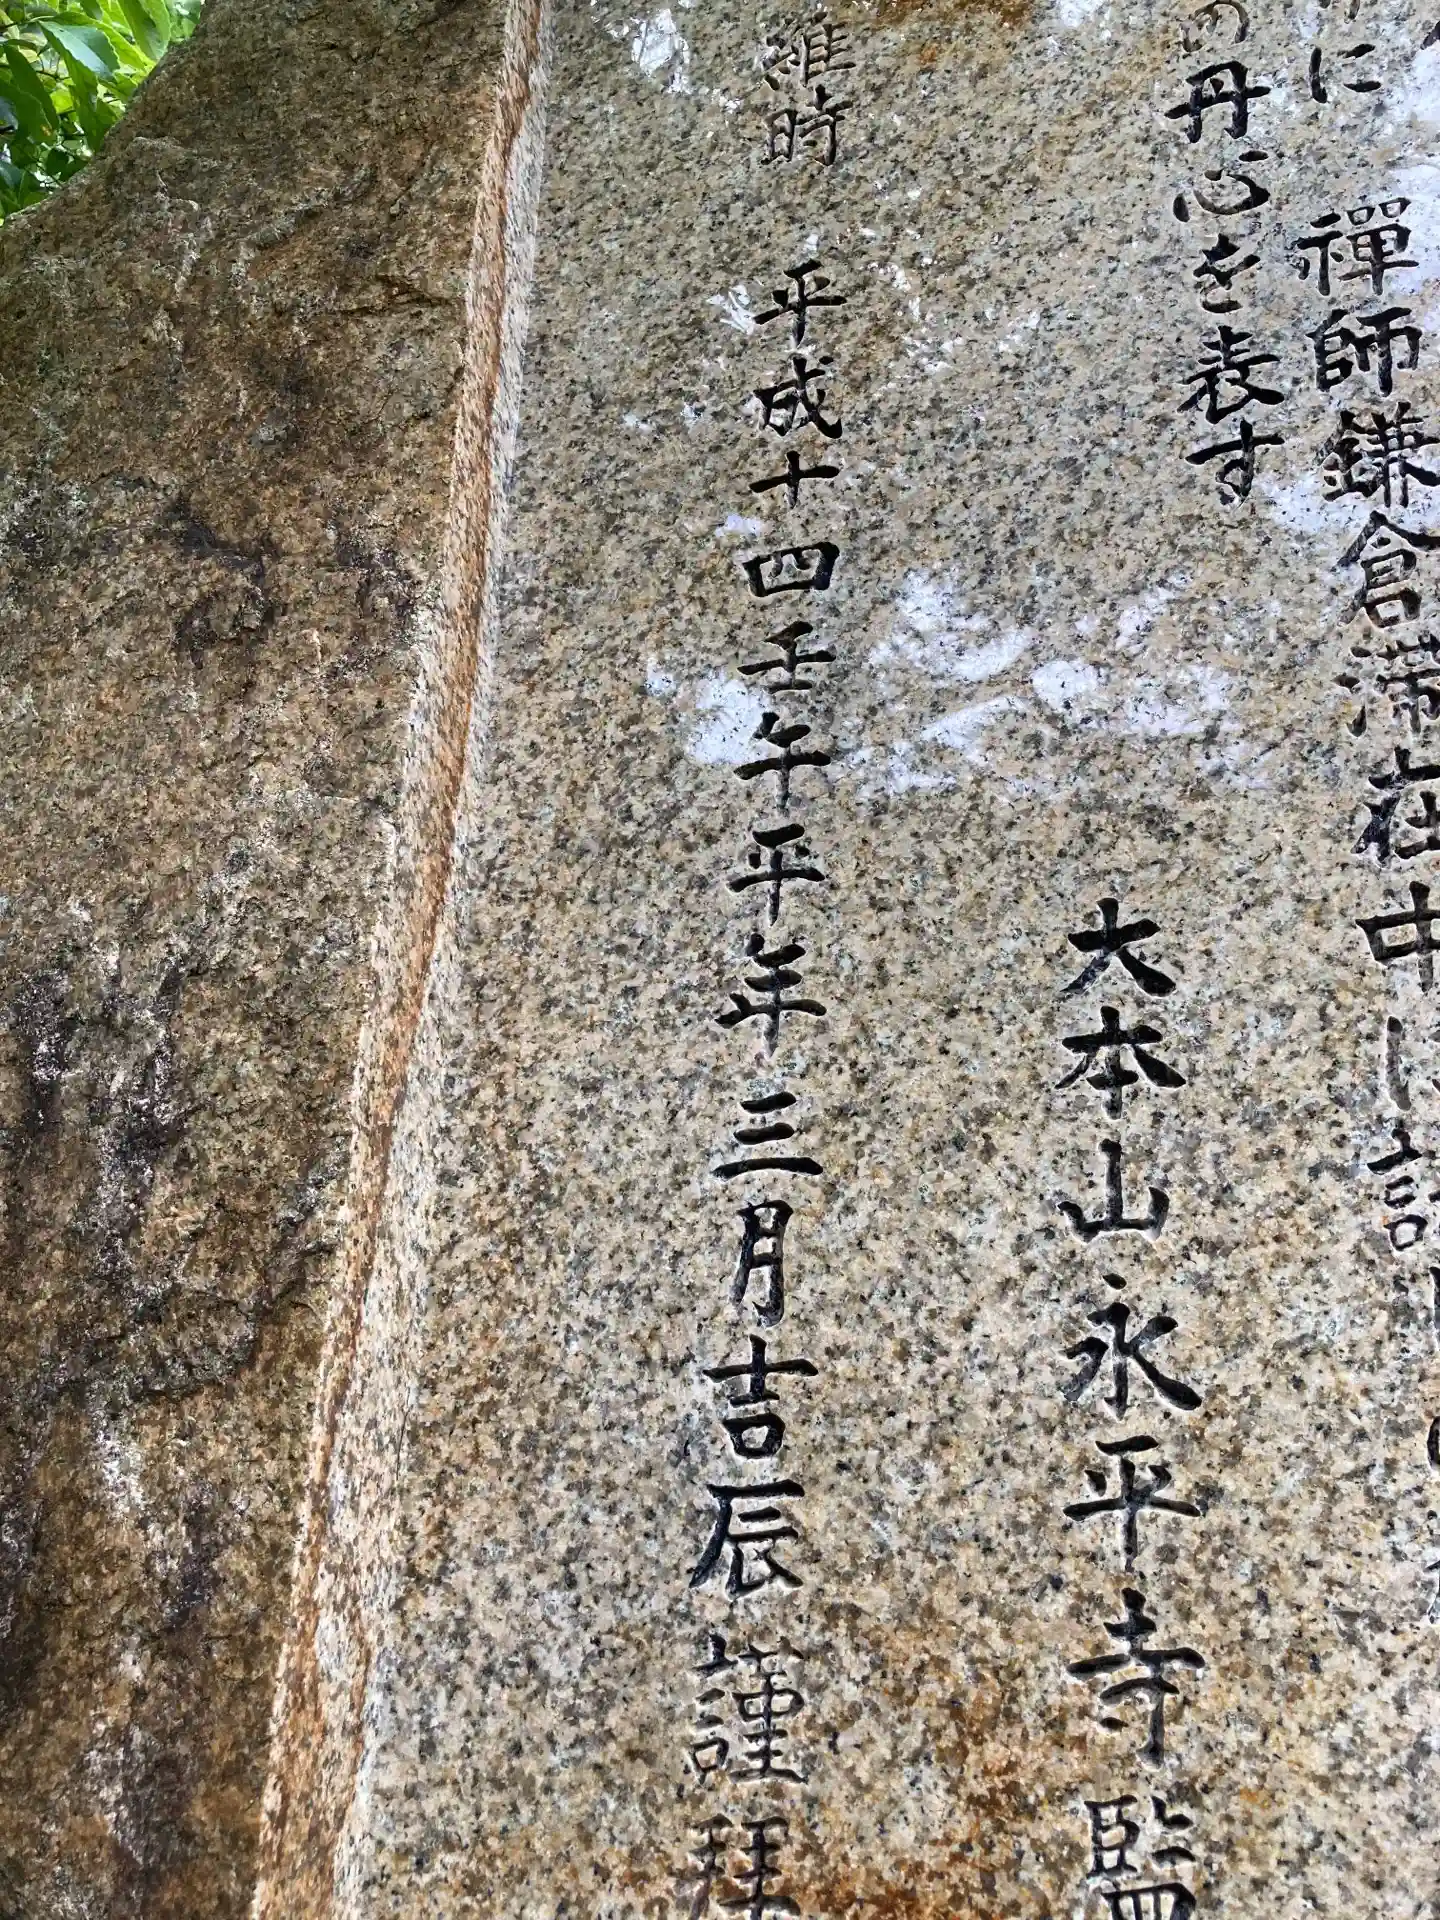 に 禅師鎌倉滞在中に詠
の丹心を表す
大本山永平寺監
維時 平成十四壬午平年三月吉辰 謹拜